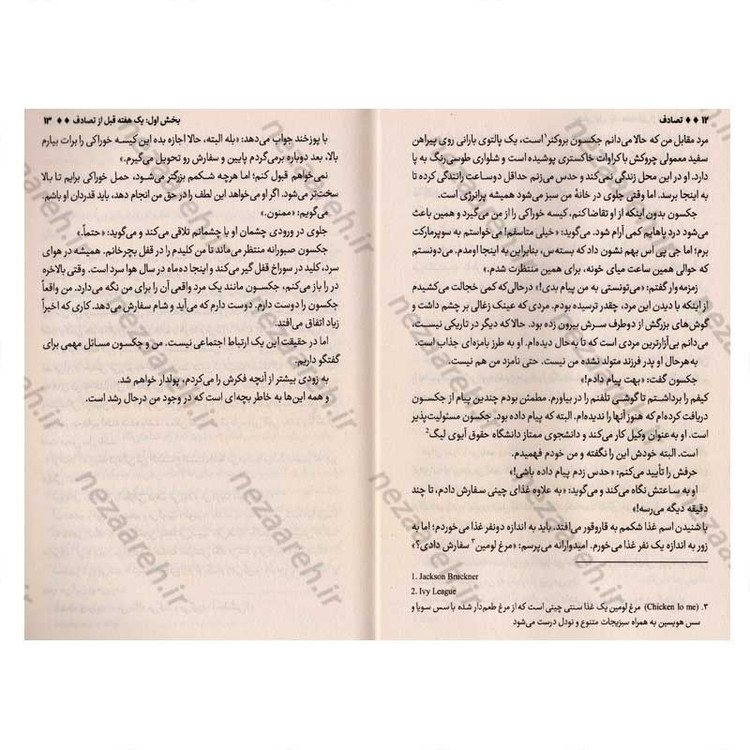 ۱۲ ♦♦ تصادف
مرد مقابل من که حالا می‌دانم جکسون بروکنر۱ است، یک پالتوی بارانی روی پیراهن
سفید معمولی چروکش با کراوات خاکستری پوشیده است و شلواری طوسی‌رنگ به پا
دارد. او در این محل زندگی نمی‌کند و حدس می‌زنم حداقل دوساعت رانندگی کرده تا
به اینجا برسد. اما وقتی جلوی در خانۀ من سبز می‌شود همیشه پرانرژی است.
جکسون بدون اینکه از او تقاضا کنم، کیسه خوراکی را از من می‌گیرد و همین باعث
می‌شود درد پاهایم کمی آرام شود. می‌گوید: «خیلی متاسفم! می‌خواستم به سوپرمارکت
برم؛ اما جی پی اس بهم نشون داد که بسته‌س، بنابراین به اینجا اومدم. می‌دونستم
که حوالی همین ساعت میای خونه، برای همین منتظرت شدم.»
زمزمه‌وار گفتم: «می‌تونستی به من پیام بدی!» درحالی‌که کمی خجالت می‌کشیدم
از اینکه با دیدن این مرد، چقدر ترسیده بودم. مردی که عینک زغالی بر چشم داشت و
گوش‌های بزرگش از دوطرف سرش بیرون زده بود. حالا که دیگر در تاریکی نیست،
می‌دانم بی‌آزارترین مردی است که تا به‌حال دیده‌ام. او به طرز بامزه‌ای جذاب است.
به‌هرحال او پدر فرزند متولد نشده من نیست. حتی نامزد من هم نیست.
جکسون گفت: «بهت پیام دادم!»
کیفم را برداشتم تا گوشی تلفنم را در بیاورم. مطمئن بودم چندین پیام از جکسون
دریافت کرده‌ام که هنوز آنها را ندیده‌ام. البته که پیام داده بود. جکسون مسئولیت‌پذیر
است. او به‌عنوان وکیل کار می‌کند و دانشجوی ممتاز دانشگاه حقوق آیوی لیگ۲
است. البته خودش این را نگفته و من خودم فهمیدم.
حرفش را تأیید می‌کنم: «حدس زدم پیام داده باشی!»
او به ساعتش نگاه می‌کند و می‌گوید: «به علاوه غذای چینی سفارش دادم، تا چند
دقیقه دیگه می‌رسه!»
با شنیدن اسم غذا شکمم به قاروقور می‌افتد. باید به اندازه دونفر غذا می‌خوردم؛ اما به
زور به اندازه یک نفر غذا می‌خورم. امیدوارانه می‌پرسم: «مرغ لومین۳ سفارش دادی؟»
1. Jackson Bruckner
2. Ivy League
۳. (Chicken lo me) مرغ لومین یک غذا سنتی چینی است که از مرغ طعم‌دار شده با سس سویا و
سس هویسین به همراه سبزیجات متنوع و نودل درست می‌شود
بخش اول: یک هفته قبل از تصادف ♦♦ ۱۳
با پوزخند جواب می‌دهد: «بله البته، حالا اجازه بده این کیسه خوراکی را برات بیارم
بالا، بعد دوباره برمی‌گردم پایین و سفارش رو تحویل می‌گیرم.»
نمی‌خواهم قبول کنم؛ اما هرچه شکمم بزرگتر می‌شود، حمل خوراکی برایم تا بالا
سخت‌تر می‌شود. اگر او می‌خواهد این لطف را در حق من انجام دهد، باید قدردان او باشم.
می‌گویم: «ممنون.»
جلوی در ورودی چشمان او با چشمانم تلاقی می‌کند و می‌گوید: «حتماً.»
جکسون صبورانه منتظر می‌ماند تا من کلیدم را در قفل بچرخانم. همیشه در هوای
سرد، کلید در سوراخ قفل گیر می‌کند و اینجا ده‌ماه در سال هوا سرد است. وقتی بالاخره
در را باز می‌کنم، جکسون مانند یک مرد واقعی آن را برای من نگه می‌دارد. من واقعاً
جکسون را دوست دارم. دوست دارم که می‌آید و شام سفارش می‌دهد. کاری که اخیراً
زیاد اتفاق می‌افتد.
اما در حقیقت این یک ارتباط اجتماعی نیست. من و جکسون مسائل مهمی برای
گفتگو داریم.
به زودی بیشتر از آنچه فکرش را می‌کردم، پولدار خواهم شد.
و همه این‌ها به خاطر بچه‌ای است که در وجود من درحال رشد است.
nezaareh.ir